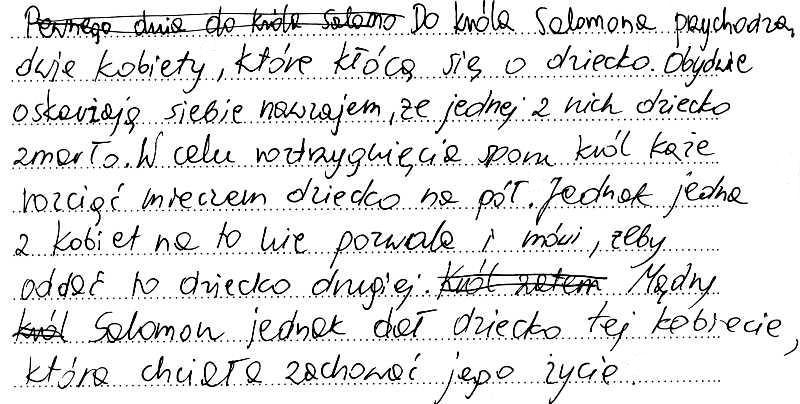 Pewnego dnia do króla Salomo Do króla Salomona przychodzą
dwie kobiety, które kłócą się o dziecko. Obydwie
oskarżają siebie nawzajem, że jednej z nich dziecko
zmarło. W celu roztrzygnięcia sporu król każe
rozciąć mieczem dziecko na pół. Jednak jedna
z kobiet na to nie pozwala i mówi, żeby
oddać to dziecko drugiej. Król zatem Mądry
król Salomon jednak dał dziecko tej kobiecie,
która chciała zachować jego życie.